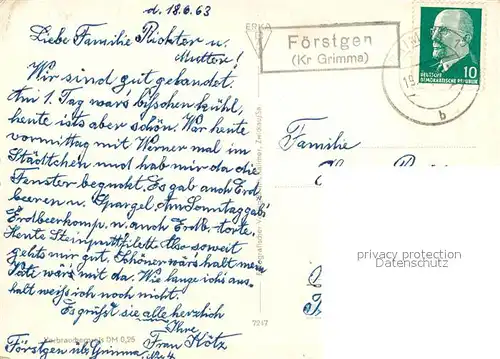 d. 18.6.63
Liebe Familie Richter u.
Mutter!
Wir sind gut gelandet.
Am 1. Tag wars bißchen kühl,
heute ists aber schön. War heute
vormittag mit Werner mal im
Städtchen und hab mir da die
Fenster beguckt. Es gab auch Erd
beeren u. Spargel. Am Sonntag gabs
Erdbeerkomp. u. auch Erdb. torte,
Heute Steinpilzfilett. Also soweit
gehts mir gut. Schöner wärs halt mein
wärs mit da. Wie lange ichs aus-
halt weiß ich noch nicht.
Es grüßt sie alle herzlich
Ihre
Frau Kötz
Förstgen üb. Grimma
Verbraucherpreis DM 0,25
7247
Förstgen
(Kr Grimma)
DEUTSCHE
DEMOKRATISCHE REPUBLIK
10
b
Familie
privacy protection
Datenschutz